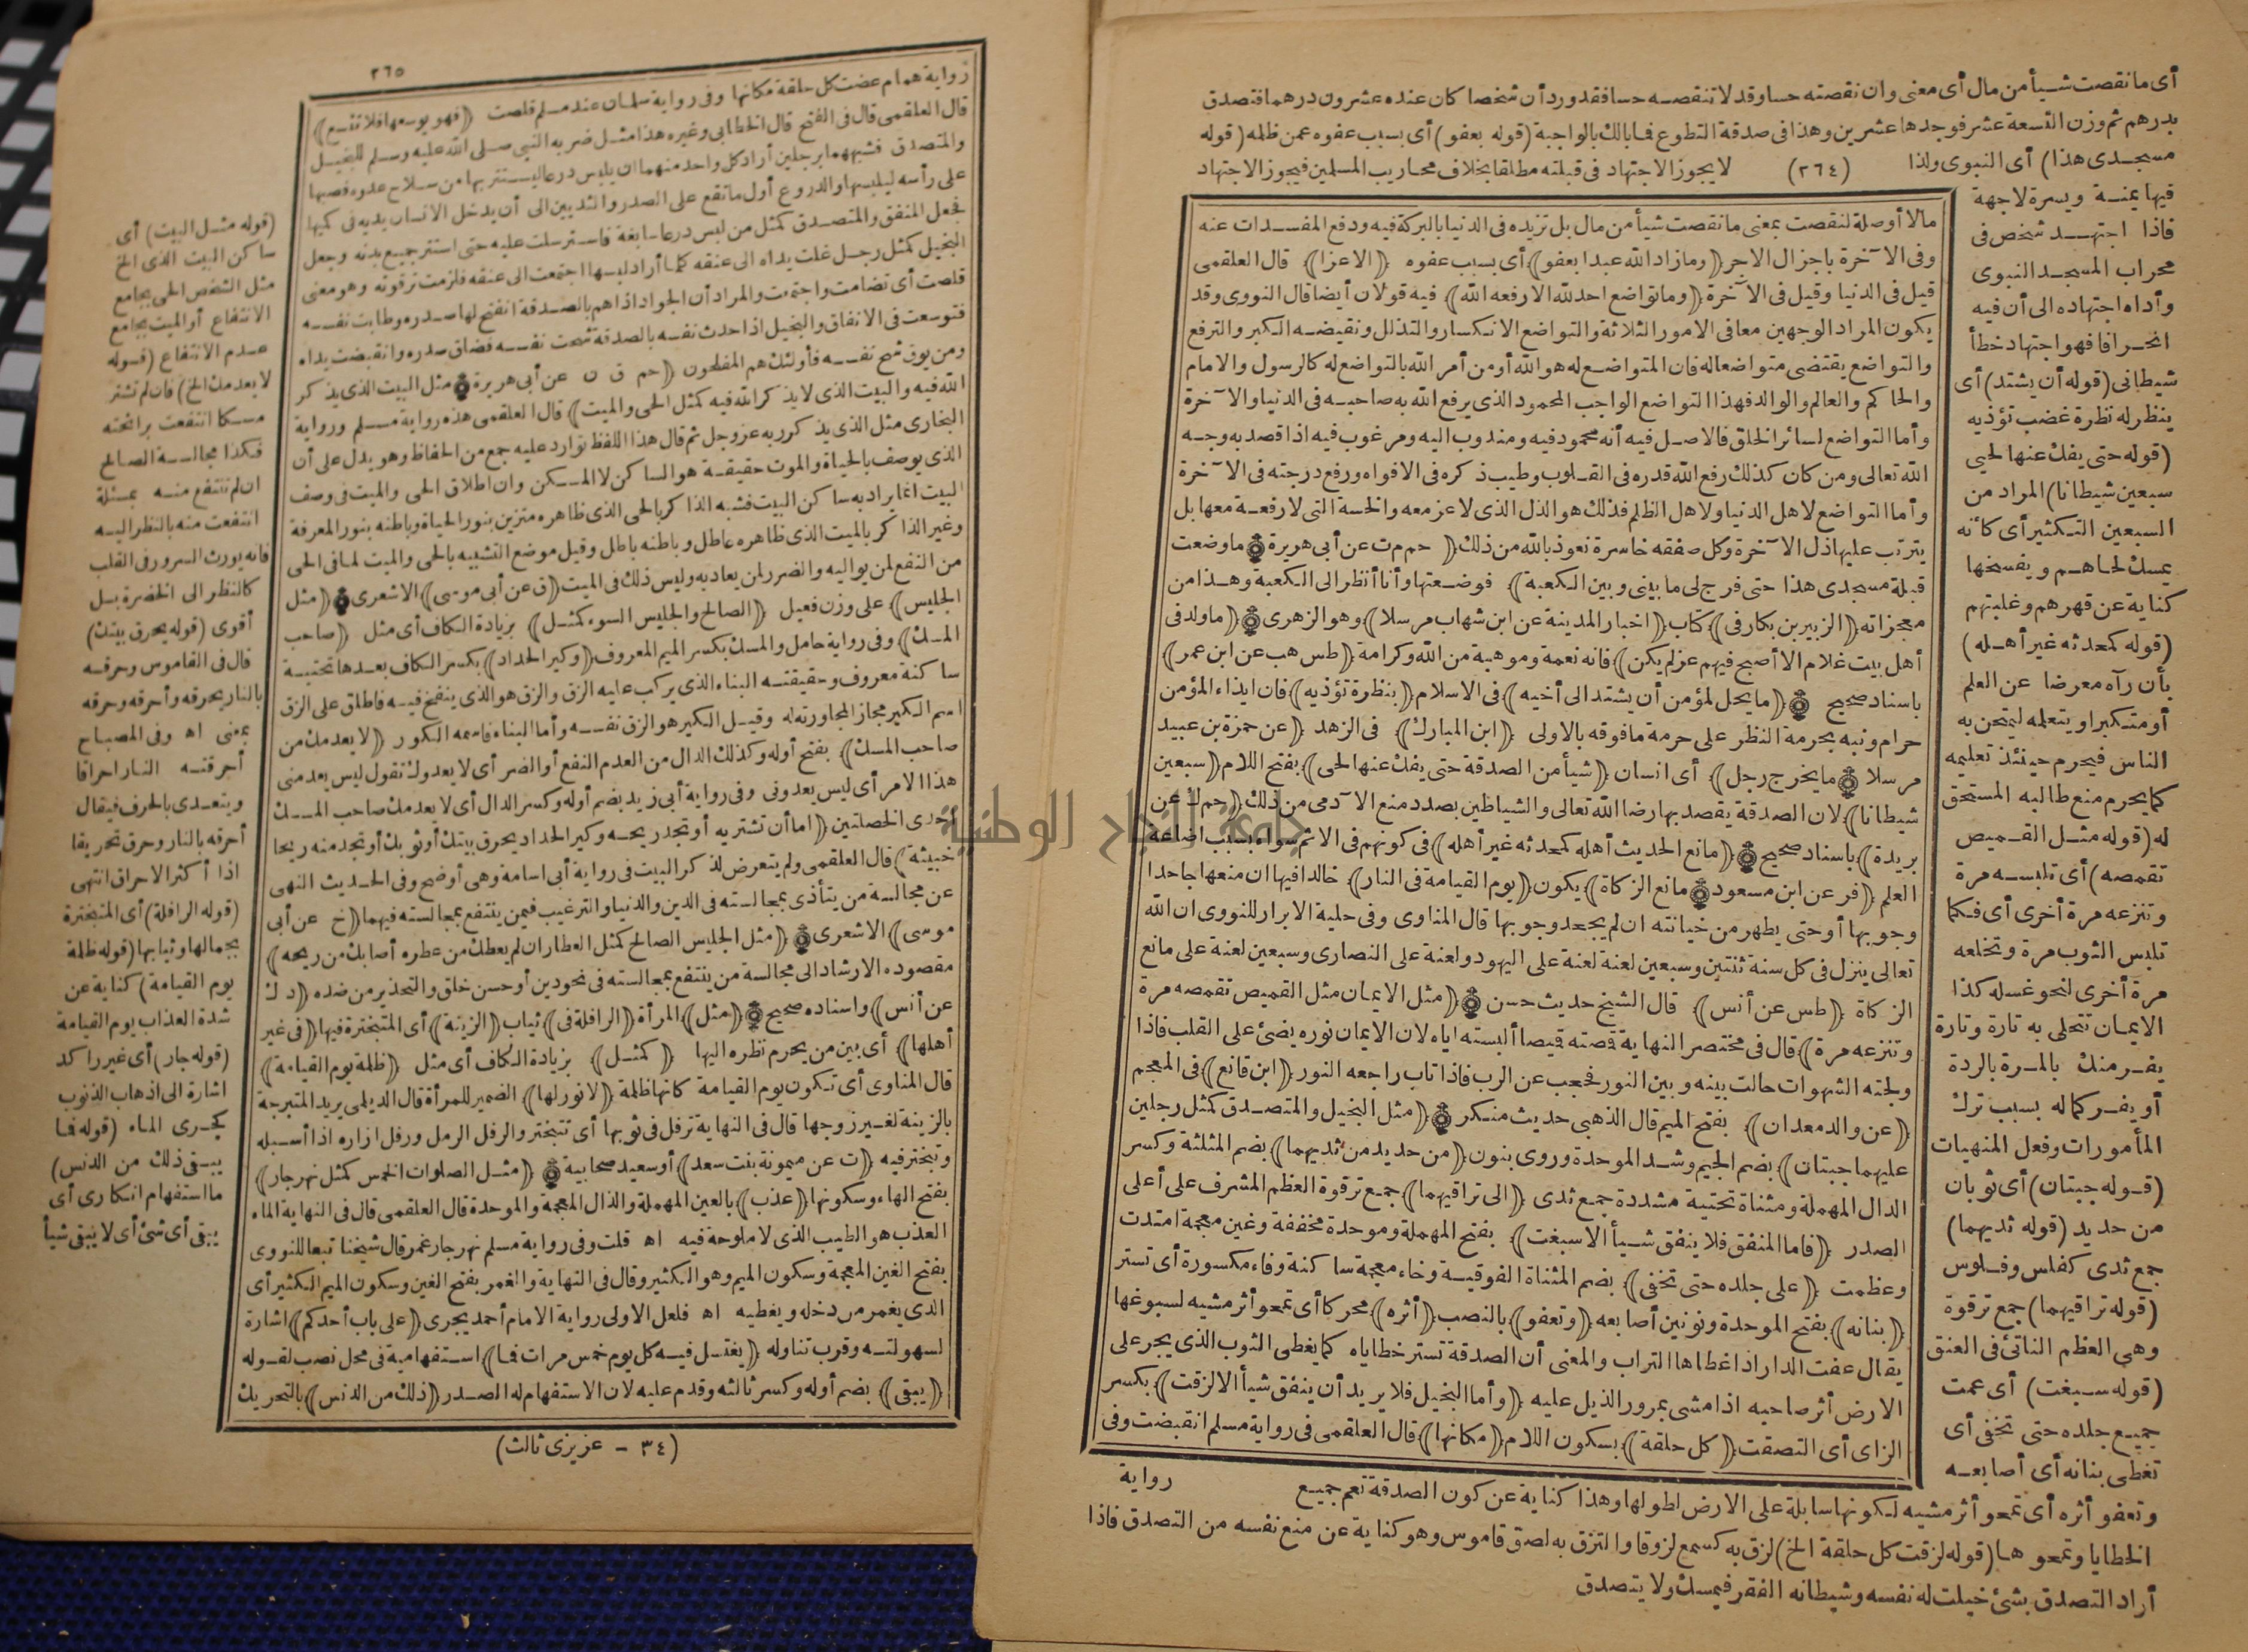 أى ما نقصت شيأ من مال أى معنى وان نقصته حسا وقد لا تنقصه حسا فقد ورد أن شخصا كان عنده عشرون درهما فتصدق
بدرهم ثم وزن التسعة عشر فوجدها عشرين وهذا فى صدقة التطوع فما بالك بالواجبة (قوله بعفو) أى بسبب عفوه عمن ظلمه (قوله
مسجدى هذا) أى النبوى ولذا (٢٦٤) لا يجوز الاجتهاد فى قبلته مطلقا بخلاف محاريب المسلمين فيجوز الاجتهاد
فيها يمنة ويسرة لا جهة
فاذا اجتهد شخص فى
محراب المسجد النبوى
وأداه اجتهاده الى أن فيه
انحرافا فهو اجتهاد خطأ
شيطانى (قوله أن يشتد) أى
ينظر له نظرة غضب تؤذيه
(قوله حتى يفك عنها لحيى
سبعين شيطانا) المراد من
السبعين التكثير أى كأنه
يمسك لحاهم ويفسخها
كناية عن قهرهم وغلبتهم
(قوله كمحدثه غير أهله)
بأن رآه معرضا عن العلم
أو متكبرا ويتعلمه ليمتحن به
الناس فيحرم حينئذ تعليمه
كما يحرم منع طالبه المستحق
له (قوله مثل القميص
تقمصه) أى تلبسه مرة
وتنزعه مرة أخرى أى فكما
تلبس الثوب مرة وتخلعه
مرة أخرى لنحو غسله كذا
الايمان تتحلى به تارة وتارة
يفر منك بالمرة بالردة
أو يفر كماله بسبب ترك
المأمورات وفعل المنهيات
(قوله جبتان) أى ثوبان
من حديد (قوله ثديهما)
جمع ثدى كفلس وفلوس
(قوله تراقيهما) جمع ترقوة
وهى العظم الناتئ فى العنق
(قوله سبغت) أى عمت
جميع جلده حتى تخفى أى
تغطى بنانه أى أصابعه
مالا أو صلة لنقصت بمعنى ما نقصت شيأ من مال بل تزيده فى الدنيا بالبركة فيه ودفع المفسدات عنه
وفى الآخرة باجزال الاجر (وما زاد الله عبدا بعفو) أى بسبب عفوه (الاعزا) قال العلقمى
قيل فى الدنيا وقيل فى الآخرة (وما تواضع احد لله الا رفعه الله) فيه قولان أيضا قال النووى وقد
يكون المراد الوجهين معا فى الامور الثلاثة والتواضع الانكسار والتذلل ونقيضه الكبر والترفع
والتواضع يقتضى متواضعا له فان المتواضع له هو الله أو من أمر الله بالتواضع له كالرسول والامام
والحاكم والعالم والوالد فهذا التواضع الواجب المحمود الذى يرفع الله به صاحبه فى الدنيا والآخرة
وأما التواضع لسائر الخلق فالاصل فيه أنه محمود فيه ومندوب اليه ومرغوب فيه اذا قصد به وجه
الله تعالى ومن كان كذلك رفع الله قدره فى القلوب وطيب ذكره فى الافواه ورفع درجته فى الآخرة
وأما التواضع لاهل الدنيا ولاهل الظلم فذلك هو الذل الذى لا عز معه والخسة التى لا رفعة معها بل
يترتب عليها ذل الآخرة وكل صفقه خاسرة نعوذ بالله من ذلك (حم م ت عن أبى هريرة) ما وضعت
قبلة مسجدى هذا حتى فرج لى ما بينى وبين الكعبة) فوضعتها وأنا أنظر الى الكعبة وهذا من
معجزاته (الزبير بن بكار فى) كتاب (اخبار المدينة عن ابن شهاب مرسلا) وهو الزهرى (ما ولد فى
أهل بيت غلام الا أصبح فيهم عز لم يكن) فانه نعمة وموهبة من الله وكرامة (طس هب عن ابن عمر)
باسناد صحيح (ما يحل لمؤمن أن يشتد الى أخيه) فى الاسلام (بنظرة تؤذيه) فان ايذاء المؤمن
حرام ونبه بحرمة النظر على حرمة ما فوقه بالاولى (ابن المبارك) فى الزهد (عن حمزة بن عبيد
مرسلا ما يخرج رجل) أى انسان (شيأ من الصدقة حتى يفك عنها لحى) بفتح اللام (سبعين
شيطانا) لان الصدقة يقصد بها رضا الله تعالى والشياطين بصدد منع الآدمى من ذلك (حم ك عن
بريدة) باسناد صحيح (مانع الحديث أهله كمحدثه غير أهله) فى كونهم فى الاثم سواء بسبب اضاعة
العلم (فر عن ابن مسعود مانع الزكاة) يكون (يوم القيامة فى النار) خالدا فيها ان منعها جاحدا
وجوبها أو حتى يطهر من خيانته ان لم يجحد وجوبها قال المناوى وفى حلية الابرار للنووى ان الله
تعالى ينزل فى كل سنة ثنتين وسبعين لعنة لعنة على اليهود ولعنة على النصارى وسبعين لعنة على مانع
الزكاة (طس عن أنس) قال الشيخ حديث حسن (مثل الايمان مثل القميص تقمصه مرة
وتنزعه مرة) قال فى مختصر النهاية قمصته قميصا ألبسته اياه لان الايمان نوره يضئ على القلب فاذا
ولجته الشهوات حالت بينه وبين النور فحجب عن الرب فاذا تاب راجعه النور (ابن قانع) فى المعجم
(عن والد معدان) بفتح الميم قال الذهبى حديث منكر (مثل البخيل والمتصدق كمثل رجلين
عليهما جبتان) بضم الجيم وشد الموحدة وروى بنون (من حديد من ثديهما) بضم المثلثة وكسر
الدال المهملة ومثناة تحتية مشددة جمع ثدى (الى تراقيهما) جمع ترقوة العظم المشرف على أعلى
الصدر (فاما المنفق فلا ينفق شيأ الا سبغت) بفتح المهملة وموحدة مخففة وغين معجمة امتدت
وعظمت (على جلده حتى تخفى) بضم المثناة الفوقية وخاء معجمة ساكنة وفاء مكسورة أى تستر
(بنانه) بفتح الموحدة ونونين أصابعه (وتعفو) بالنصب (أثره) محركا أى تمحو أثر مشيه لسبوغها
يقال عفت الدار اذا غطاها التراب والمعنى أن الصدقة تستر خطاياه كما يغطى الثوب الذى يجر على
الارض أثر صاحبه اذا مشى بمرور الذيل عليه (وأما البخيل فلا يريد أن ينفق شيأ الا لزقت) بكسر
الزاى أى التصقت (كل حلقة) بسكون اللام (مكانها) قال العلقمى فى رواية مسلم انقبضت وفى
رواية
وتعفو أثره أى تمحو أثر مشيه لكونها سابلة على الارض لطولها وهذا كناية عن كون الصدقة تعم جميع
الخطايا وتمحوها (قوله لزقت كل حلقة الخ) لزق به كسمع لزوقا والتزق به لصق قاموس وهو كناية عن منع نفسه من التصدق فاذا
أراد التصدق بشئ خيلت له نفسه وشيطانه الفقر فيمسك ولا يتصدق
٢٦٥
رواية همام عضت كل حلقة مكانها وفى رواية سلمان عند مسلم قلصت (فهو يوسعها فلا تتسع)
قال العلقمى قال فى الفتح قال الخطابى وغيره هذا مثل ضربه النبى صلى الله عليه وسلم للبخيل
والمتصدق فشبههما برجلين أراد كل واحد منهما ان يلبس درعا ليستتر بها من سلاح عدوه فصبها
على رأسه ليلبسها والدروع أول ما تقع على الصدر والثديين الى أن يدخل الانسان يديه فى كميها
فجعل المنفق والمتصدق كمثل من لبس درعا سابغة فاسترسلت عليه حتى استتر جميع بدنه وجعل
البخيل كمثل رجل غلت يداه الى عنقه كلما أراد لبسها اجتمعت الى عنقه فلزمت ترقوته وهو معنى
قلصت أى تضامت واجتمعت والمراد أن الجواد اذا هم بالصدقة انفتح لها صدره وطابت نفسه
فتوسعت فى الانفاق والبخيل اذا حدث نفسه بالصدقة شحت نفسه فضاق صدره وانقبضت يداه
ومن يوق شح نفسه فأولئك هم المفلحون (حم ق ن عن أبى هريرة مثل البيت الذى يذكر
الله فيه والبيت الذى لا يذكر الله فيه كمثل الحى والميت) قال العلقمى هذه رواية مسلم ورواية
البخارى مثل الذى يذكر ربه عز وجل ثم قال هذا اللفظ توارد عليه جمع من الحفاظ وهو يدل على أن
الذى يوصف بالحياة والموت حقيقة هو الساكن لا المسكن وان اطلاق الحى والميت فى وصف
البيت انما يراد به ساكن البيت فشبه الذاكر بالحى الذى ظاهره متزين بنور الحياة وباطنه بنور المعرفة
وغير الذاكر بالميت الذى ظاهره عاطل وباطنه باطل وقيل موضع التشبيه بالحى والميت لما فى الحى
من النفع لمن يواليه والضرر لمن يعاديه وليس ذلك فى الميت (ق عن أبى موسى) الاشعرى (مثل
الجليس) على وزن فعيل (الصالح والجليس السوء كمثل) بزيادة الكاف أى مثل (صاحب
المسك) وفى رواية حامل والمسك بكسر الميم المعروف (وكير الحداد) بكسر الكاف بعدها تحتية
ساكنة معروف وحقيقته البناء الذى يركب عليه الزق والزق هو الذى ينفخ فيه فاطلق على الزق
اسم الكير مجازا لمجاورته له وقيل الكير هو الزق نفسه وأما البناء فاسمه الكور (لا يعدمك من
صاحب المسك) بفتح أوله وكذلك الدال من العدم النفع أو الضر أى لا يعدوك تقول ليس يعدمنى
هذا الامر أى ليس يعدونى وفى رواية أبى زيد بضم أوله وكسر الدال أى لا يعدمك صاحب المسك
احدى الخصلتين (اما أن تشتريه أو تجد ريحه وكير الحداد يحرق بيتك أو ثوبك أو تجد منه ريحا
خبيثة) قال العلقمى ولم يتعرض لذكر البيت فى رواية أبى اسامة وهى أوضح وفى الحديث النهى
عن مجالسة من يتأذى بمجالسته فى الدين والدنيا والترغيب فيمن ينتفع بمجالسته فيهما (خ عن أبى
موسى) الاشعرى (مثل الجليس الصالح كمثل العطار ان لم يعطك من عطره أصابك من ريحه)
مقصوده الارشاد الى مجالسة من ينتفع بمجالسته فى نحو دين أو حسن خلق والتحذير من ضده (د ك
عن أنس) واسناده صحيح (مثل) المرأة (الرافلة فى) ثياب (الزينة) أى المتبخترة فيها (فى غير
أهلها) أى بين من يحرم نظره اليها (كمثل) بزيادة الكاف أى مثل (ظلمة يوم القيامة)
قال المناوى أى تكون يوم القيامة كانها ظلمة (لا نور لها) الضمير للمرأة قال الديلمى يريد المتبرجة
بالزينة لغير زوجها قال فى النهاية ترفل فى ثوبها أى تتبختر والرفل الرمل ورفل ازاره اذا أسبله
وتبختر فيه (ت عن ميمونة بنت سعد) أو سعيد صحابية (مثل الصلوات الخمس كمثل نهر جار)
بفتح الهاء وسكونها (عذب) بالعين المهملة والذال المعجمة والموحدة قال العلقمى قال فى النهاية الماء
العذب هو الطيب الذى لا ملوحة فيه اه قلت وفى رواية مسلم نهر جار غمر قال شيخنا تبعا للنووى
بفتح الغين المعجمة وسكون الميم وهو الكثير وقال فى النهاية والغمر بفتح الغين وسكون الميم الكثير أى
الذى يغمر من دخله ويغطيه اه فلعل الاولى رواية الامام أحمد يجرى (على باب أحدكم) اشارة
لسهولته وقرب تناوله (يغتسل فيه كل يوم خمس مرات فما) استفهامية فى محل نصب لقوله
(يبقى) بضم أوله وكسر ثالثه وقدم عليه لان الاستفهام له الصدر (ذلك من الدنس) بالتحريك
(٣٤ - عزيزى ثالث)
(قوله مثل البيت) أى
ساكن البيت الذى الخ
مثل الشخص الحى بجامع
الانتفاع أو الميت بجامع
عدم الانتفاع (قوله
لا يعدمك الخ) فان لم تشتر
مسكا انتفعت برائحته
فكذا مجالسة الصالح
ان لم تنتفع منه بمسئلة
انتفعت منه بالنظر اليه
فانه يورث السرور فى القلب
كالنظر الى الخضرة بل
أقوى (قوله يحرق بيتك)
قال فى القاموس وحرقه
بالنار يحرقه وأحرقه وحرقه
بمعنى اه وفى المصباح
أحرقته النار احراقا
ويتعدى بالحرف فيقال
أحرقه بالنار وحرق تحريقا
اذا أكثر الاحراق انتهى
(قوله الرافلة) أى المتبخترة
بجمالها وثيابها (قوله ظلمة
يوم القيامة) كناية عن
شدة العذاب يوم القيامة
(قوله جار) أى غير راكد
اشارة الى اذهاب الذنوب
كجرى الماء (قوله فما
يبقى ذلك من الدنس)
ما استفهام انكارى أى
يبقى أى شئ أى لا يبقى شيأ
جامعة النجاح الوطنية